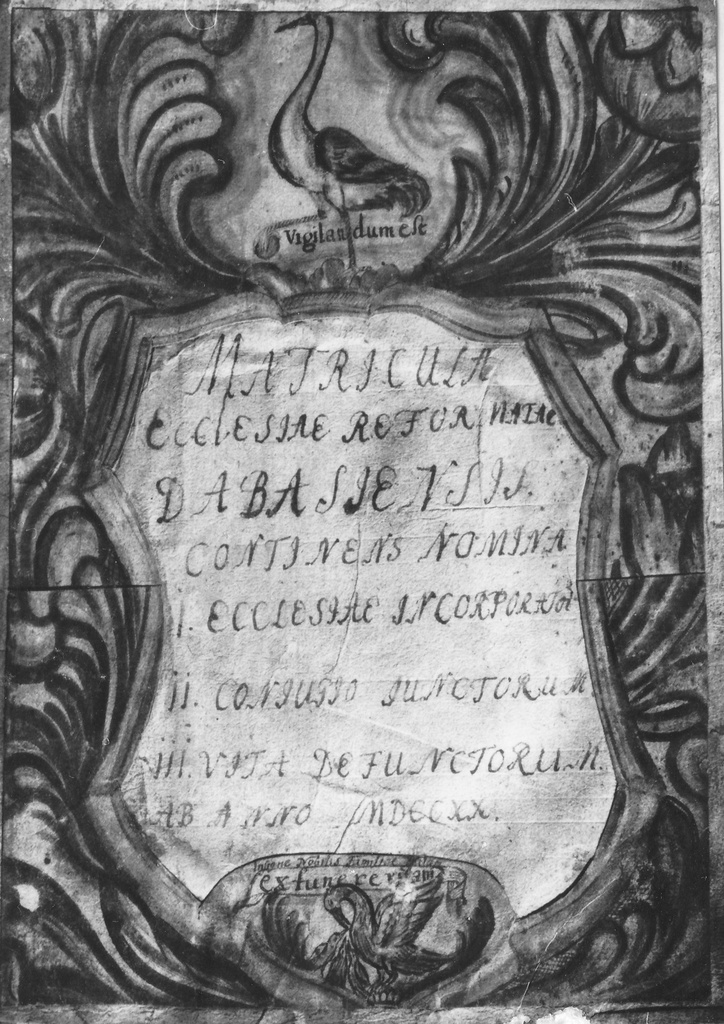 Vigilandum est
MATRICULA
ECCLESIAE REFORMATAE
DABASIENSIS.
CONTINENS NOMINA
I. ECCLESIAE INCORPORATOR
II. CONIUGIO IUNCTORUM
III. VITA DEFUNCTORUM.
AB ANNO MDCCXX.
Insigne Nobilis Familiae
ex funere vitam